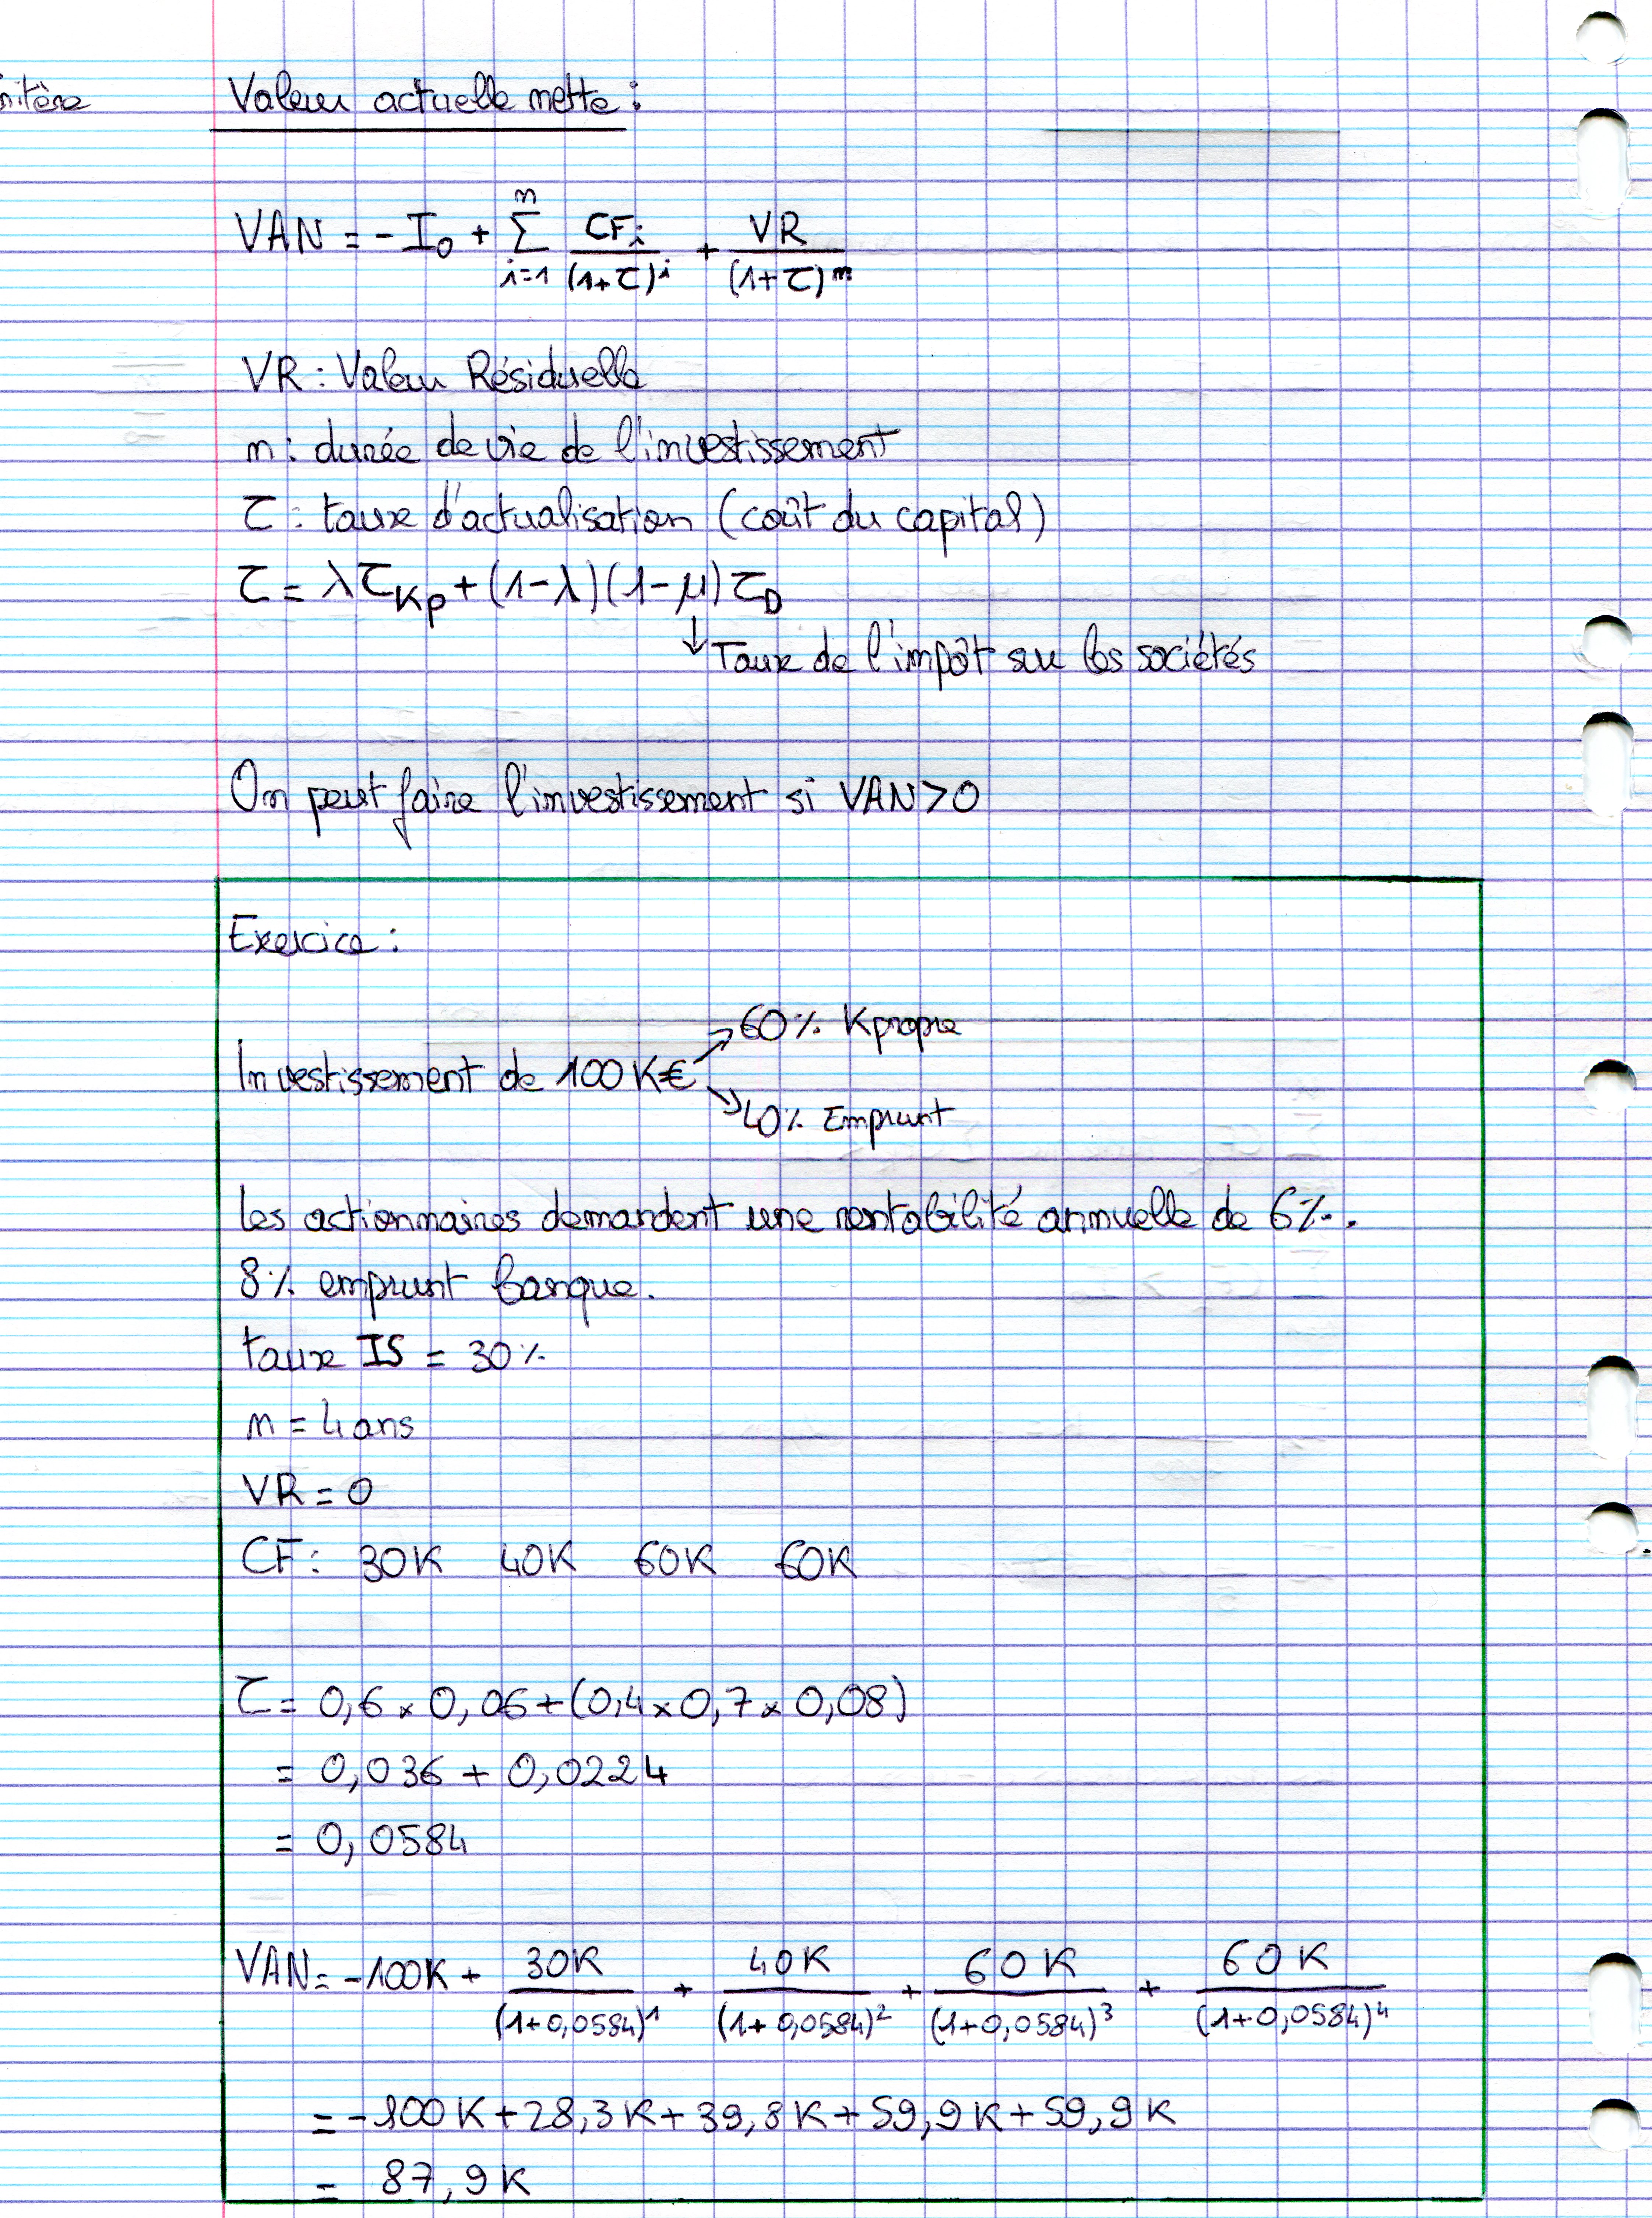 nitère
Valeur actuelle nette :
VAN = - I₀ + Σ (i=1 → n) CFᵢ / (1+τ)ⁱ + VR / (1+τ)ⁿ
VR : Valeur Résiduelle
n : durée de vie de l'investissement
τ : taux d'actualisation (coût du capital)
τ = λ τ_Kp + (1-λ)(1-μ) τ_D
↓ Taux de l'impôt sur les sociétés
On peut faire l'investissement si VAN > 0
Exercice :
60 % Kpropre
Investissement de 100 K€
40 % Emprunt
Les actionnaires demandent une rentabilité annuelle de 6 %.
8 % emprunt banque.
taux IS = 30 %
n = 4 ans
VR = 0
CF : 30K 40K 60K 60K
τ = 0,6 × 0,06 + (0,4 × 0,7 × 0,08)
= 0,036 + 0,0224
= 0,0584
VAN = -100K + 30K / (1+0,0584)¹ + 40K / (1+0,0584)² + 60K / (1+0,0584)³ + 60K / (1+0,0584)⁴
= -100K + 28,3K + 39,8K + 59,9K + 59,9K
= 87,9K